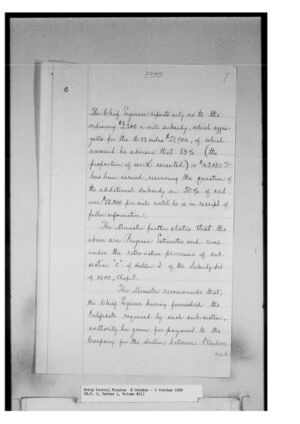 7
The Chief Engineer reports only as to the
ordinary $3,200 a mile subsidy, which aggre-
gates for the miles $51,904, of which
amount he advises that 83% (the
proportion of work executed) or
has been earned, reserving the question of
the additional subsidy or 50% of cost
over $15,000 per mile until he is in receipt of
fuller information.
The Minister further states that the
above are Progress Estimates and come
under the retro-active provisions of sub-
section "c" of section 2 of the Subsidy Act
of 1900, Chap 8.
The Minister recommends that,
the Chief Engineer having furnished the
Certificate required by such sub-section,
authority be given for payment to the
Company for the section between Windsor
and
Privy Council Minutes 4 October - 5 October 1900
(R.G. 2, Series 1, Volume 831)